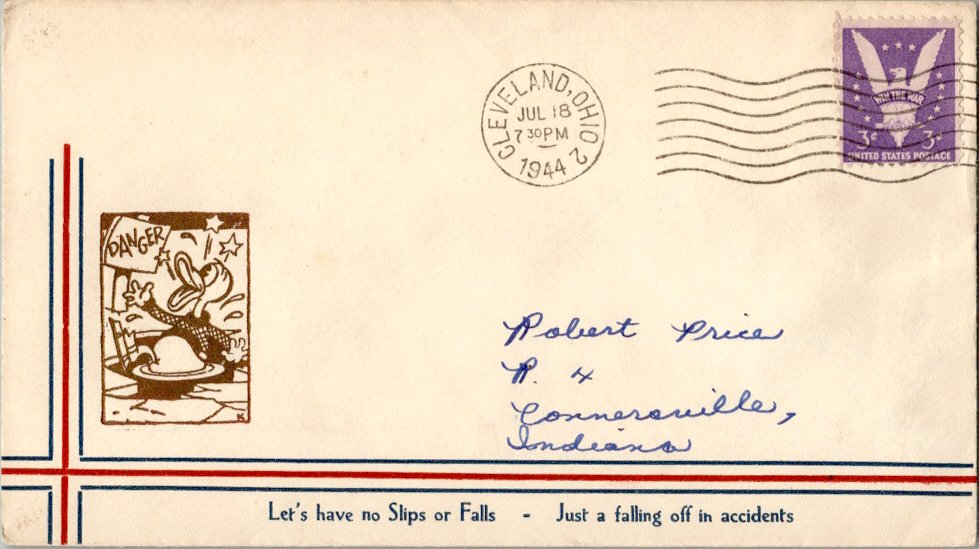 CLEVELAND, OHIO 2
JUL 18
7 30 PM
1944
WIN THE WAR
3¢ 3¢
UNITED STATES POSTAGE
DANGER
K
Robert Price
R. 4
Connersville,
Indiana
Let's have no Slips or Falls - Just a falling off in accidents